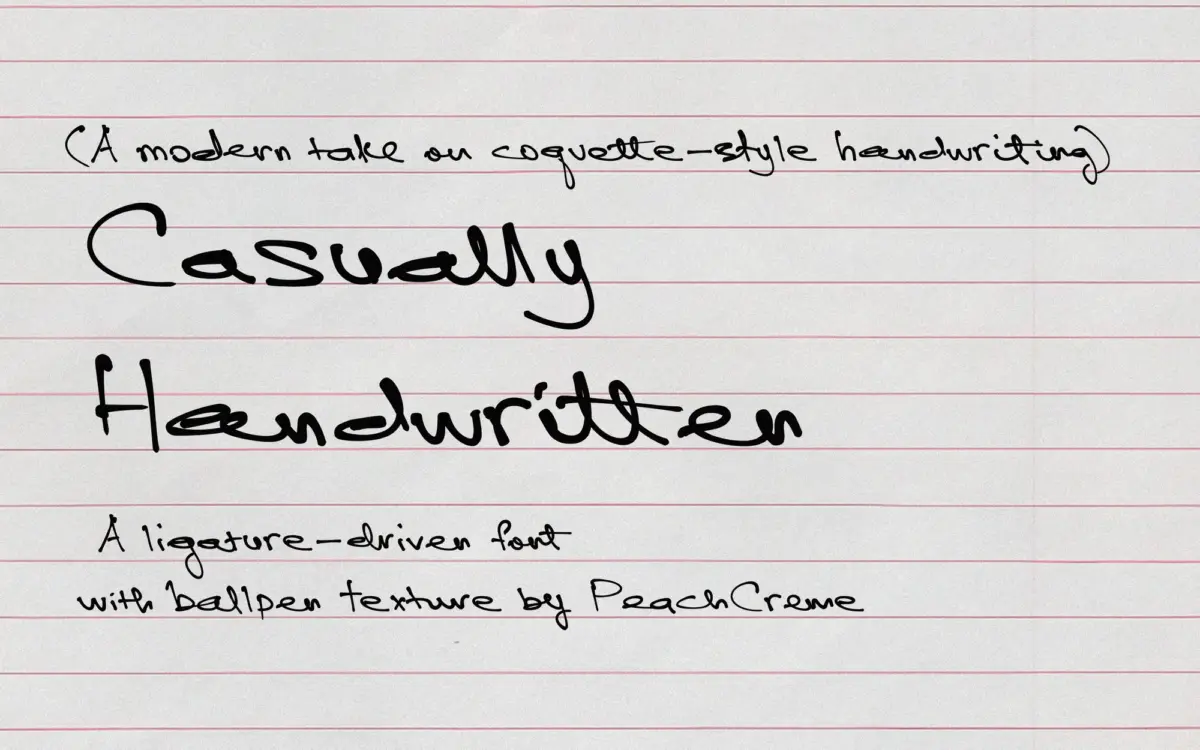 (A modern take on coquette-style handwriting)
Casually
Handwritten
A ligature-driven font
with ballpen texture by PeachCreme